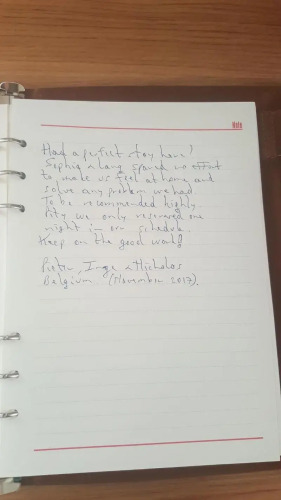 Note
Had a perfect stay here!
Sophia & Lang spared no effort
to make us feel at home and
solve any problem we had.
To be recommended highly.
Pity we only reserved one
night in our schedule.
Keep on the good work!
Pieter, Inge & Nicholas
Belgium (November 2017).